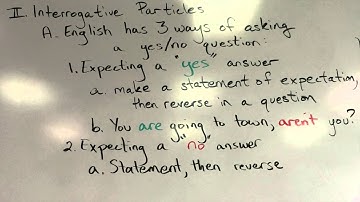 II. Interrogative Particles
A. English has 3 ways of asking
a yes/no question:
1. Expecting a "yes" answer
a. make a statement of expectation,
then reverse in a question
b. You are going to town, aren't you?
2. Expecting a "no" answer
a. Statement, then reverse